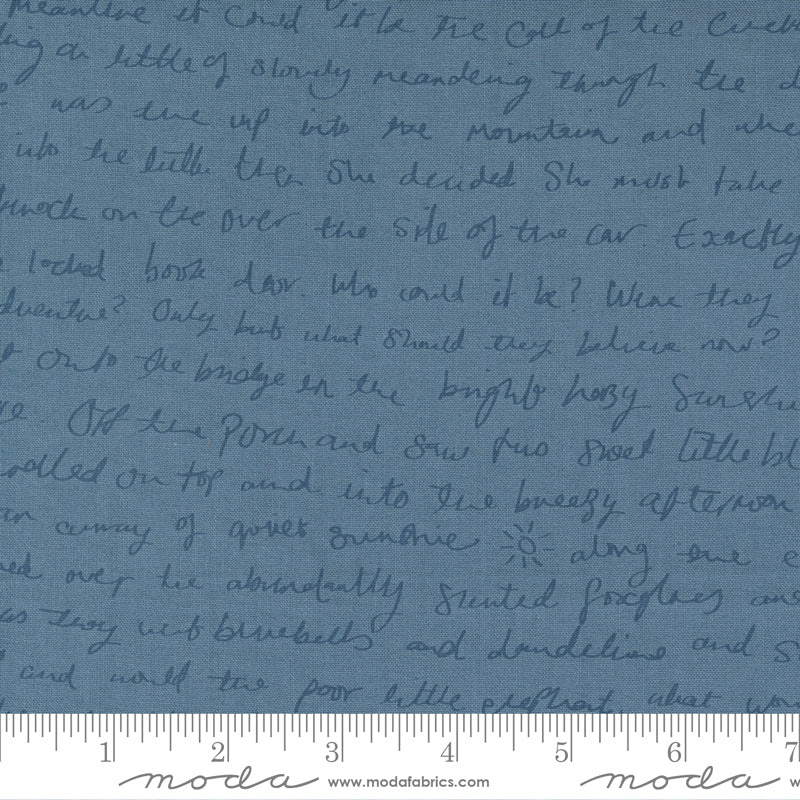 meantime it could it be the call of the
on little of slowly meandering through the
was the up into the mountain and
into the little then she decided She must take
knock on the over the side of the car. Exactly
locked book door. Who could it be? Were they
adventure? Only but what should they believe now?
onto the bridge in the bright hazy
Off the porch and saw two sweet little
on top and into the breezy afternoon
away of quiet sunshine along
over the abundantly scented foxgloves
as they went bluebells and dandelions and
and would the poor little elephant. what
1 2 3 4 5 6 7
moda www.modafabrics.com moda w